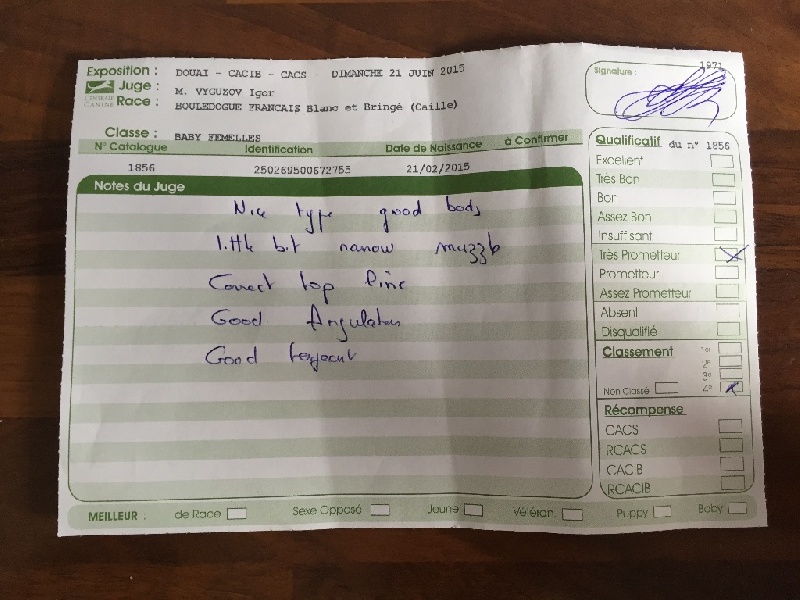 Exposition : DOUAI - CACIB - CACS DIMANCHE 21 JUIN 2015
Juge : M. VYGUZOV Igor
CENTRALE CANINE
Race : BOULEDOGUE FRANCAIS Blanc et Bringé (Caille)
Signature : 1971
Classe : BABY FEMELLES
N° Catalogue Identification Date de Naissance à Confirmer
1856 250269500672755 21/02/2015
Notes du Juge
Nice type good body
little bit narrow muzzle
Correct top line
Good Angulations
Good
Qualificatif du n° 1856
Excellent
Très Bon
Bon
Assez Bon
Insuffisant
Très Prometteur
Prometteur
Assez Prometteur
Absent
Disqualifié
Classement
Non Classé
Récompense
CACS
RCACS
CACIB
RCACIB
MEILLEUR : de Race Sexe Opposé Jeune Vétéran Puppy Baby